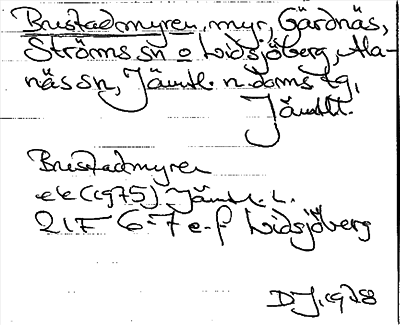 Brustadmyren, myr, Gärdnäs,
Ströms sn o Lidsjöberg, Ala-
näs sn, Jämtl. n. doms tg,
Jämtl.
Brustadmyren
ek (1975) Jämtl. L.
21F 6-7 e-f Lidsjöberg
DJ. 1978